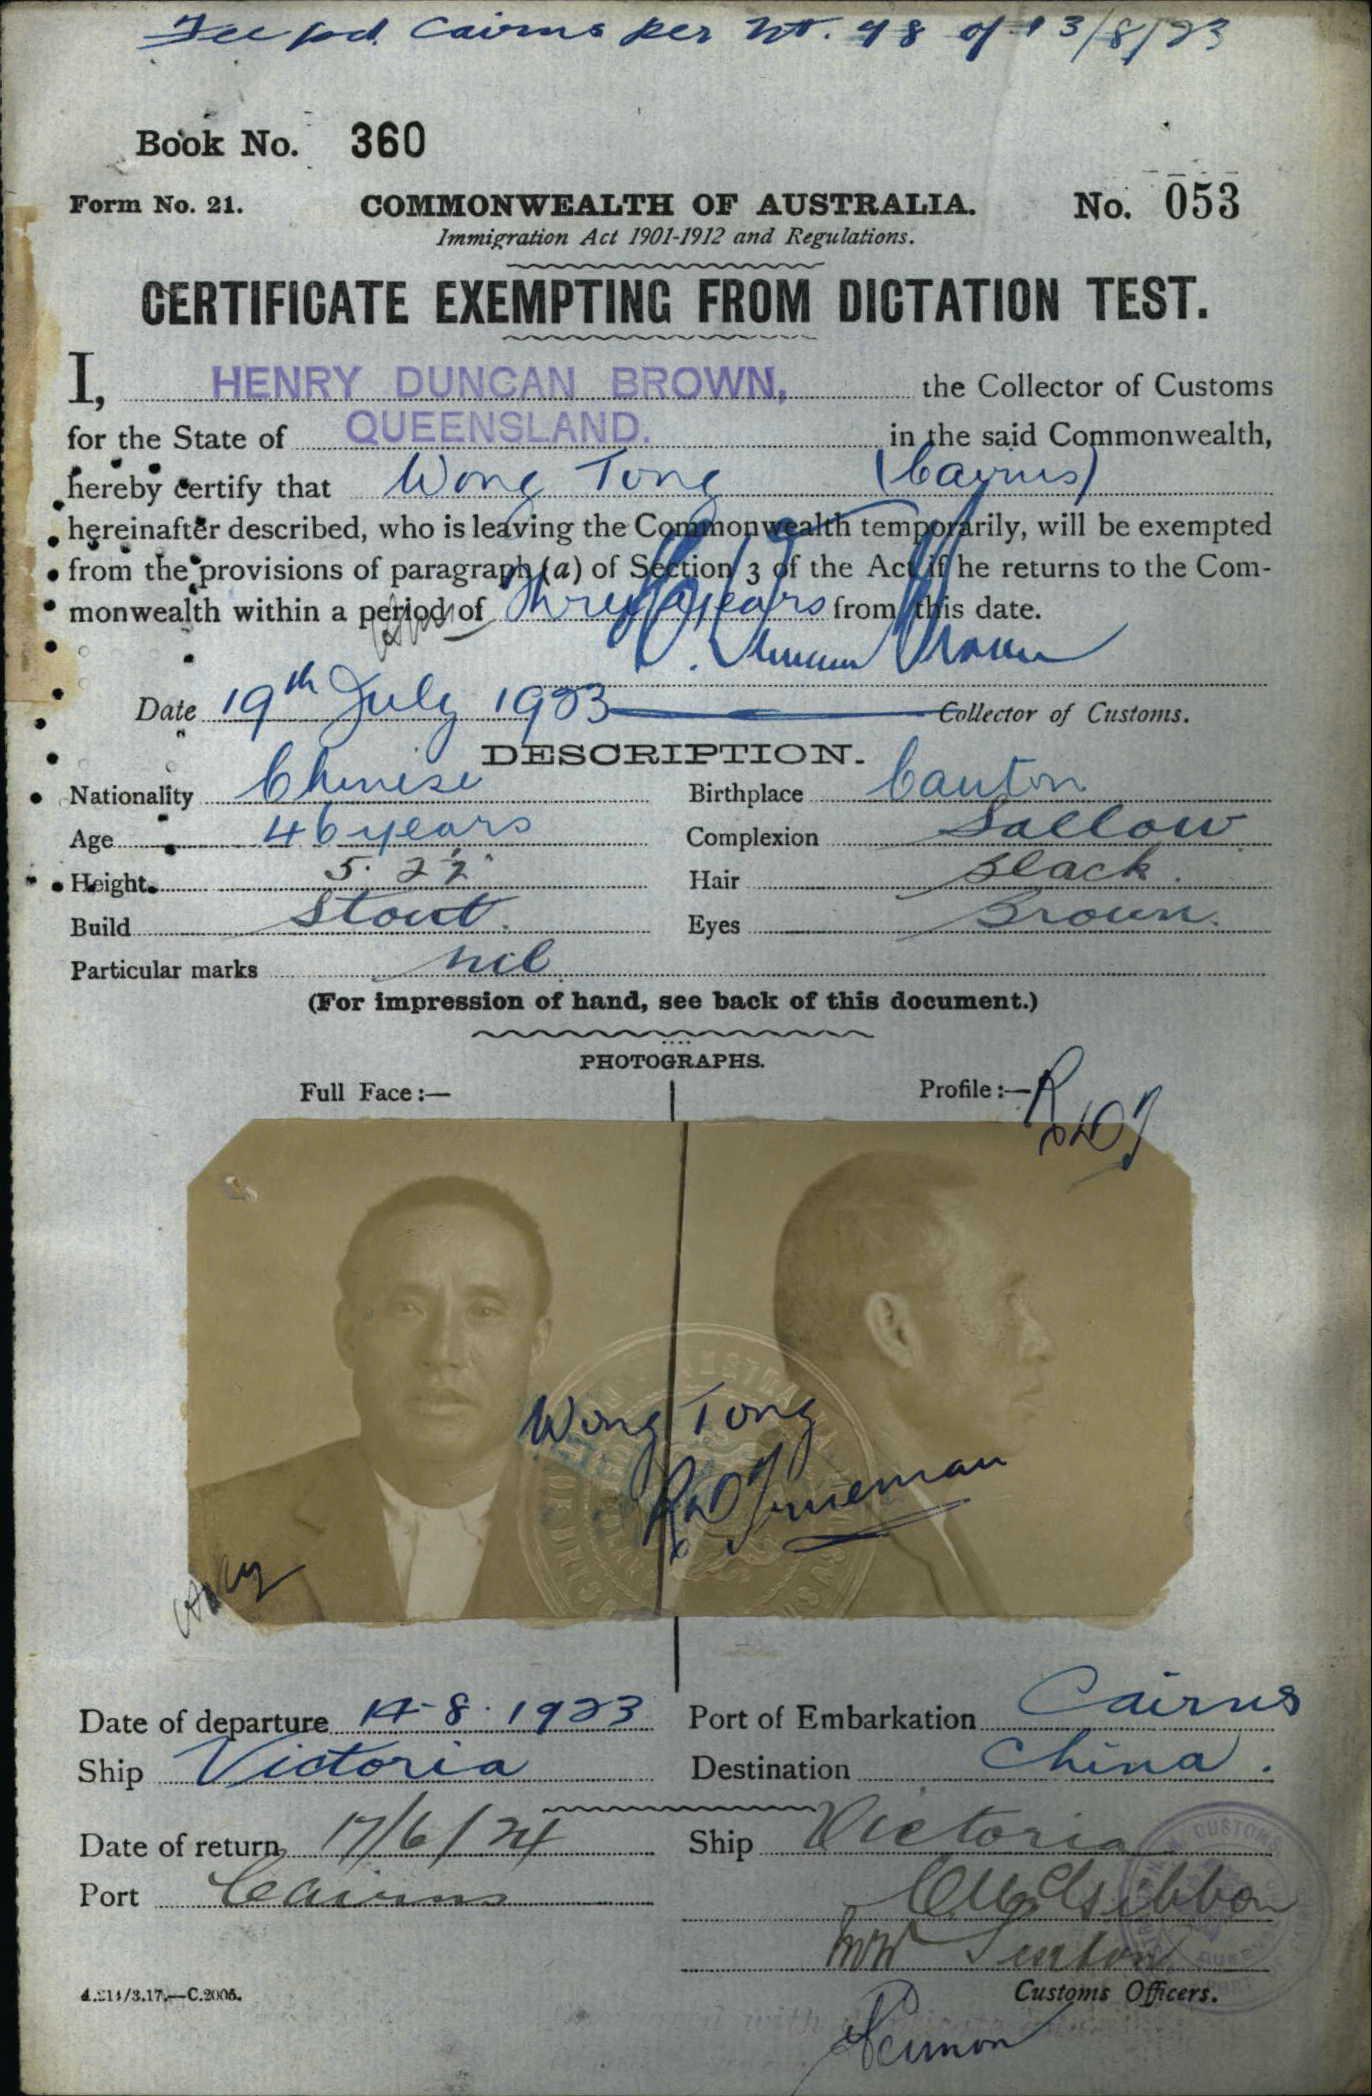 Fee pd. Cairns per No. 98 of 13/8/23
Book No. 360
Form No. 21. COMMONWEALTH OF AUSTRALIA. No. 053
Immigration Act 1901-1912 and Regulations.
CERTIFICATE EXEMPTING FROM DICTATION TEST.
I, HENRY DUNCAN BROWN, the Collector of Customs
for the State of QUEENSLAND. in the said Commonwealth,
hereby certify that Wong Tong (Cairns)
hereinafter described, who is leaving the Commonwealth temporarily, will be exempted
from the provisions of paragraph (a) of Section 3 of the Act if he returns to the Com-
monwealth within a period of Three years from this date.
H. Duncan Brown
Date 19th July 1923 Collector of Customs.
DESCRIPTION.
Nationality Chinese Birthplace Canton
Age 46 years Complexion Sallow
Height 5. 2½" Hair Black.
Build Stout. Eyes Brown.
Particular marks nil
(For impression of hand, see back of this document.)
PHOTOGRAPHS.
Full Face:— Profile:—
Wong Tong
Date of departure 14-8-1923 Port of Embarkation Cairns
Ship Victoria Destination China.
Date of return 17/6/24 Ship Victoria
Port Cairns
Customs Officers.